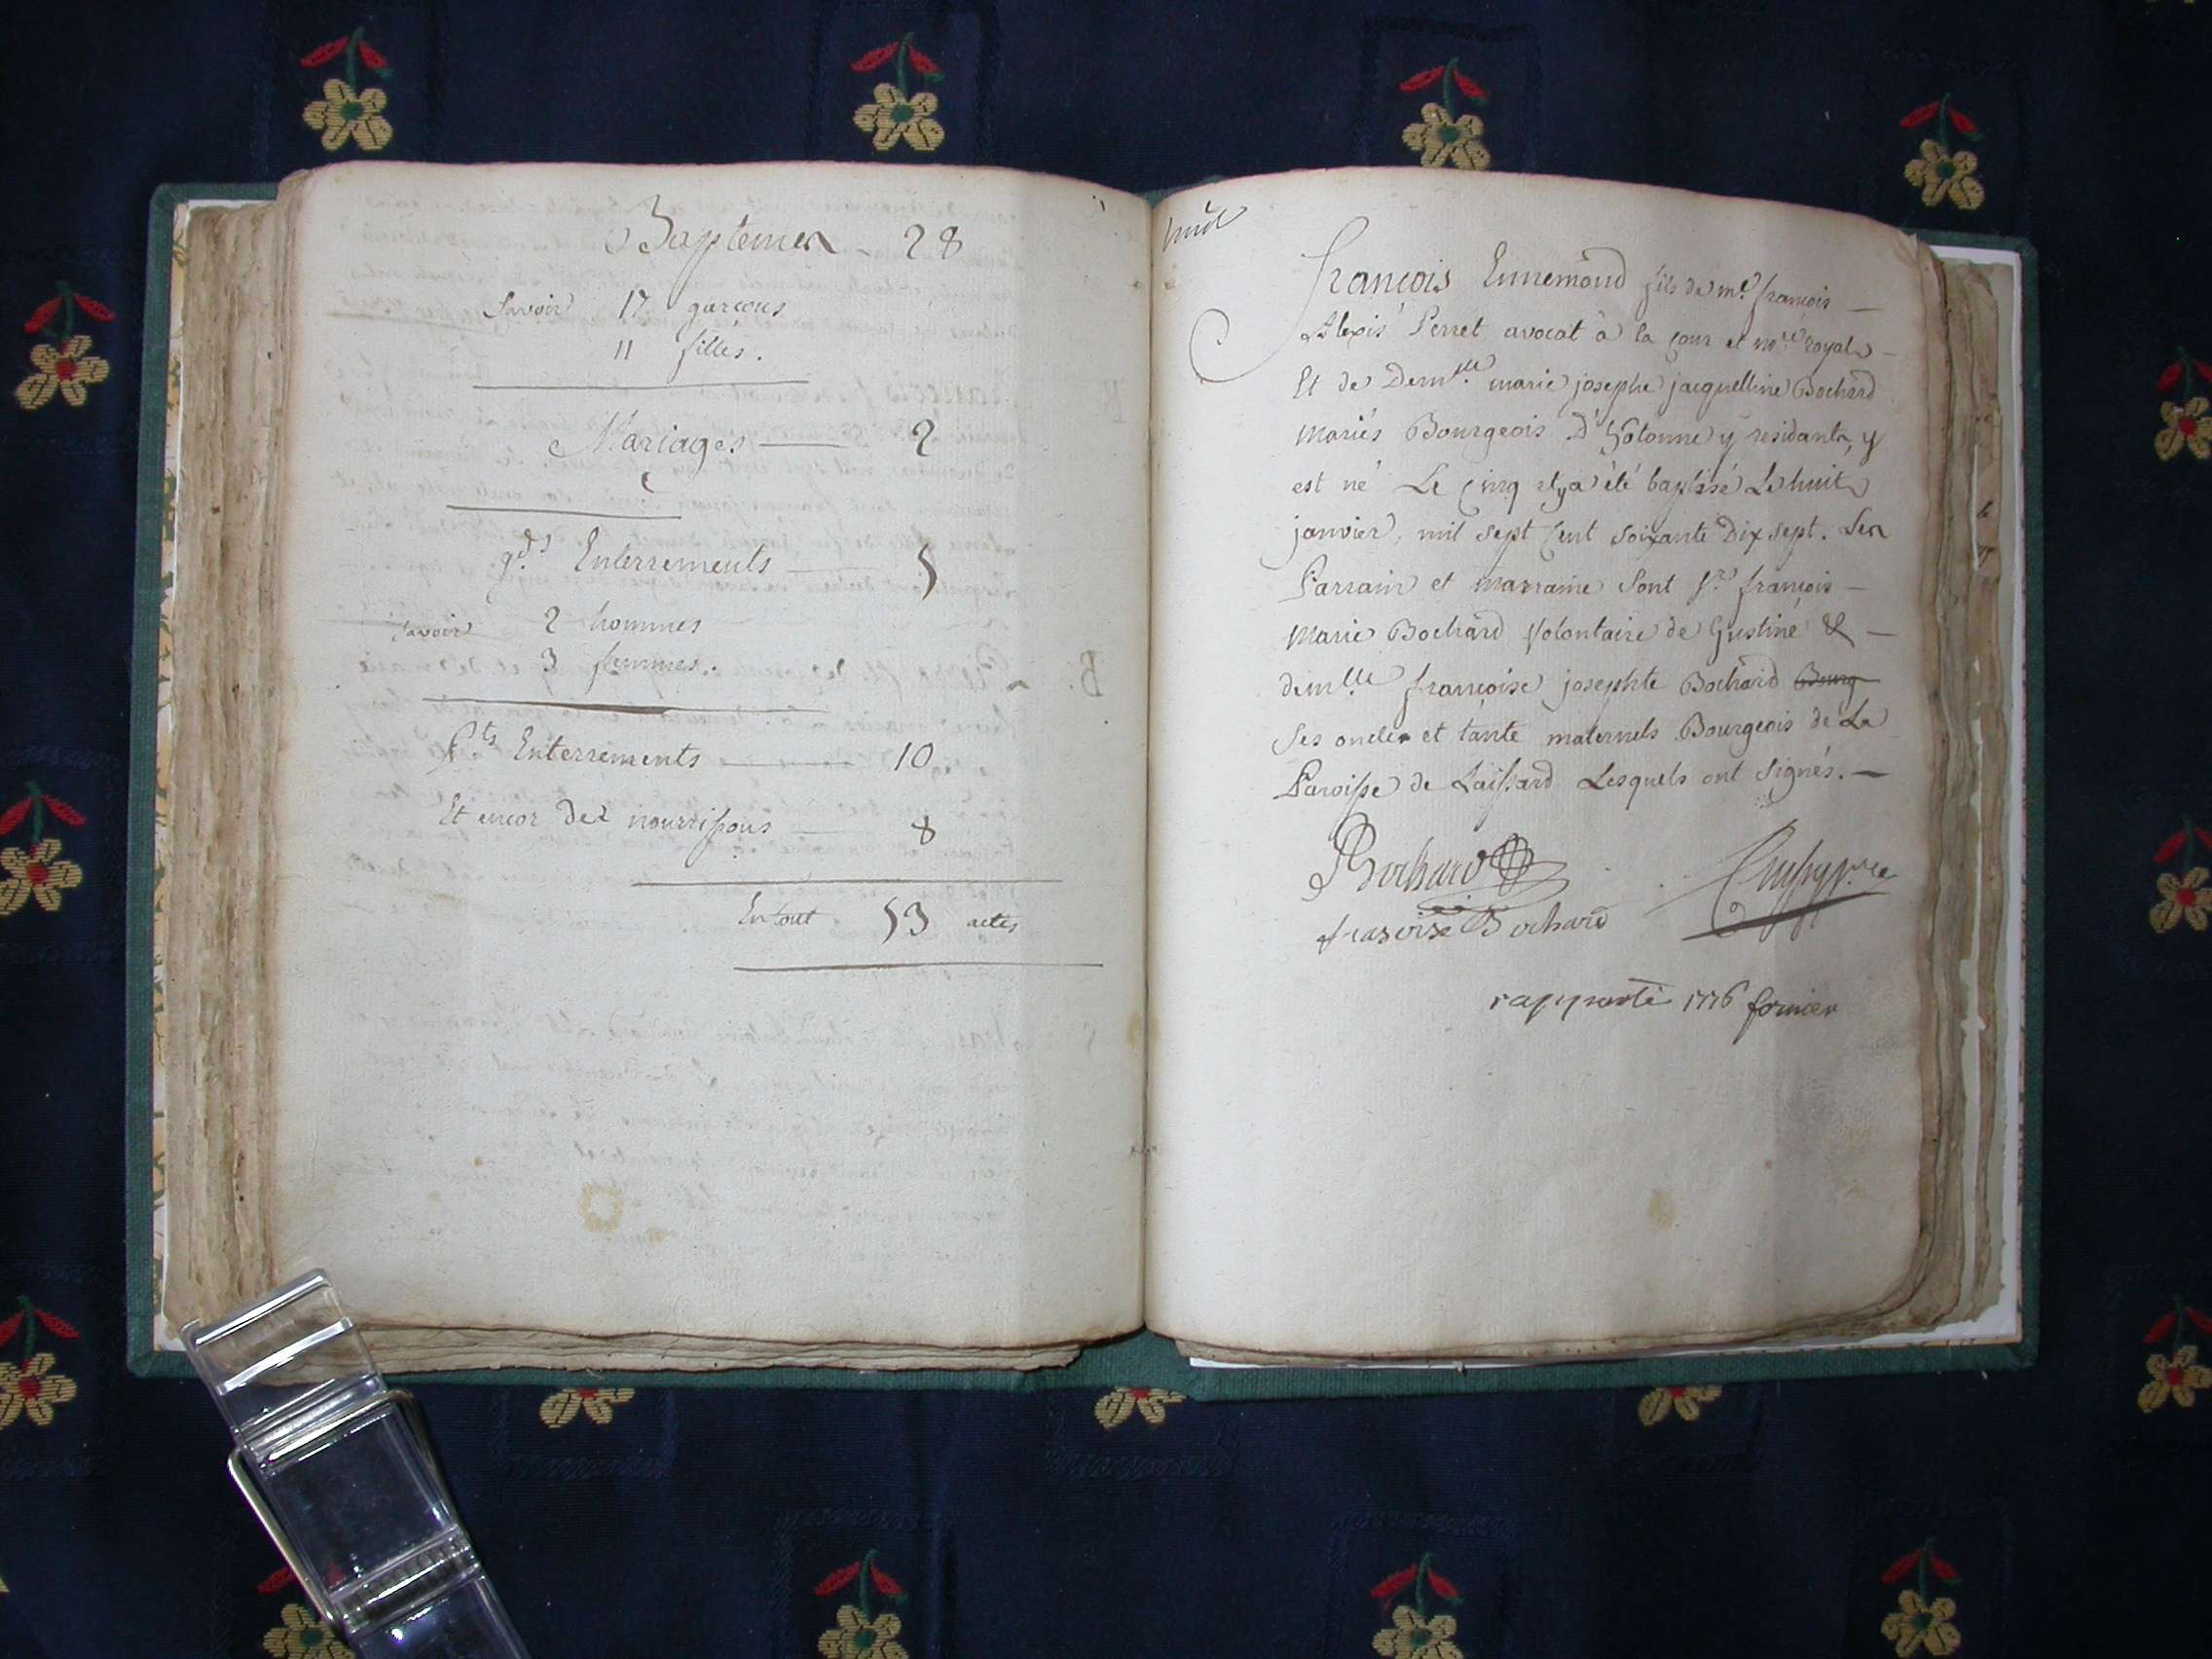 Baptemes 28
Savoir 17 garcons
11 filles.
Mariages 2
gds Enterrements 5
Savoir 2 hommes
3 femmes.
Pts Enterrements 10
Et encor des nourrissons 8
En tout 53 actes
huit
françois Ennemond fils de me. françois
Alexis Perret avocat à la cour et nore. royal
Et de Demlle. marie josephe jacquelline Bochard
mariés Bourgeois D'hotonne y residants, y
est né Le Cinq et y a été baptisé Le huit
janvier, mil sept Cent Soixante Dix sept. Ses
Parrain et marraine Sont Sr. françois
marie Bochard Volontaire de &
demlle françoise josephte Bochard Bourg
Ses oncle et tante maternels Bourgeois de La
Paroisse de Laissard Lesquels ont Signés.
Bochard
francoise Bochard
rapporté 1776